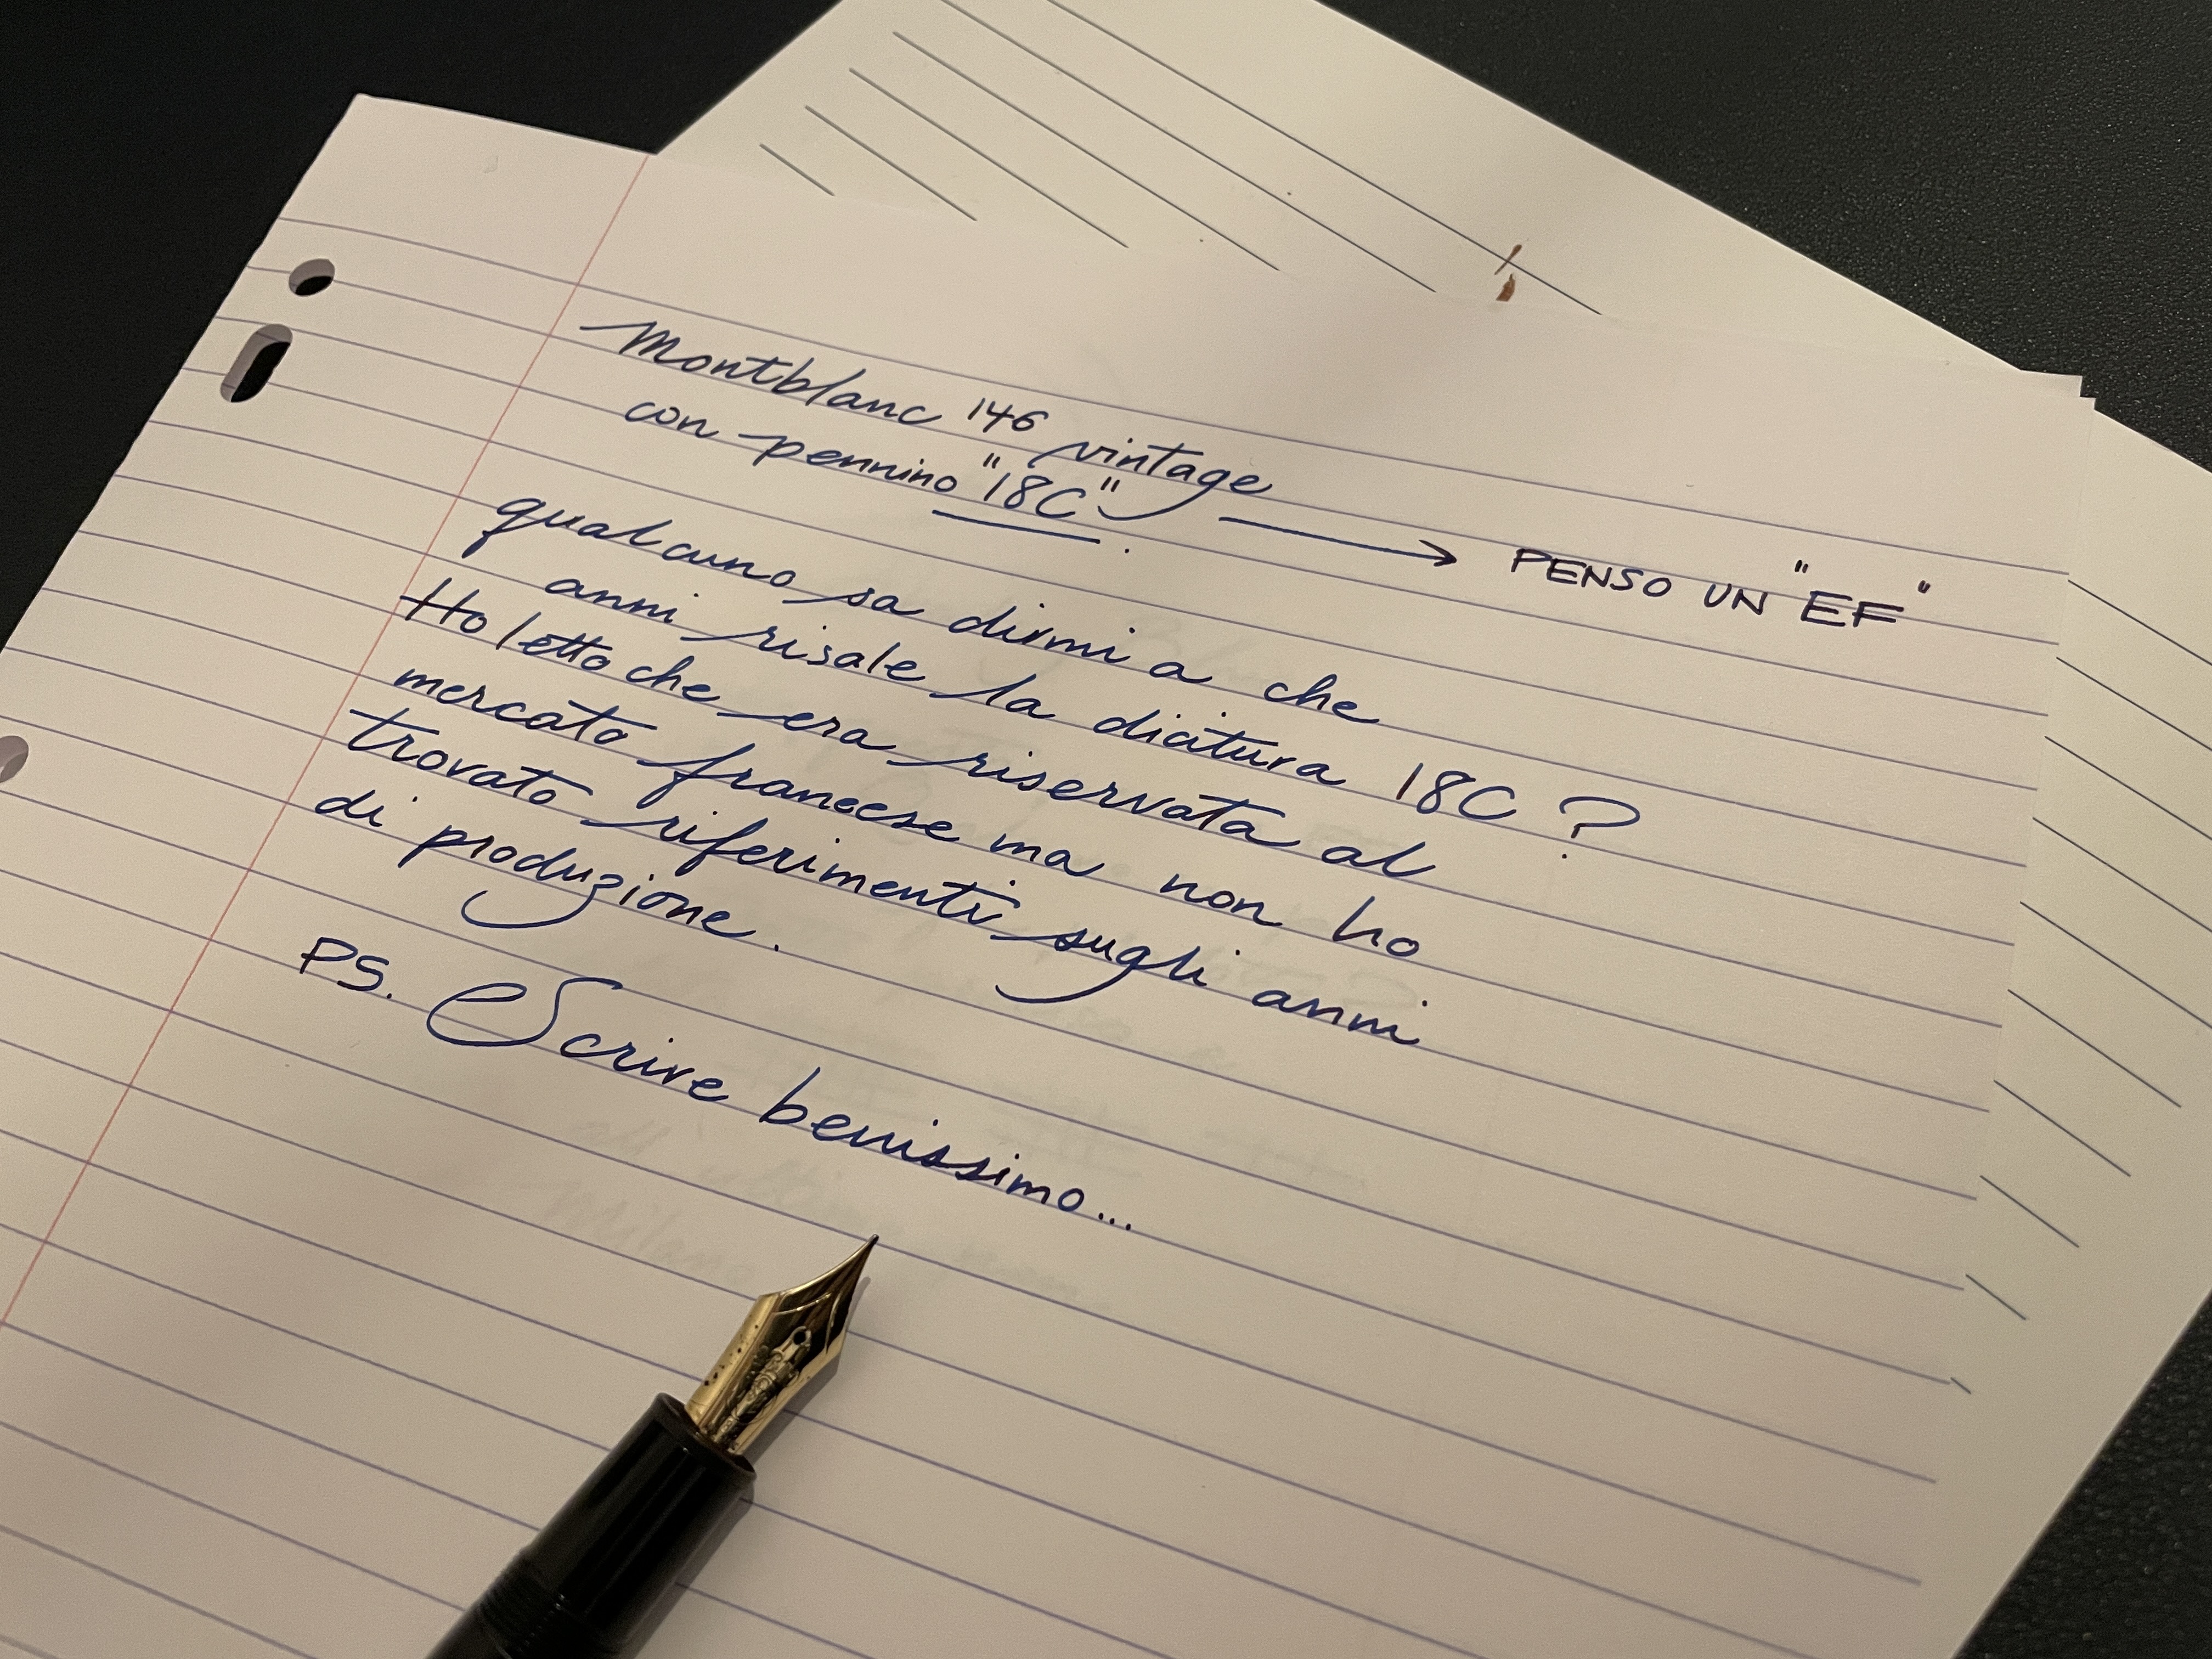 Montblanc 146 vintage
con pennino "18C". → PENSO UN "EF"
qualcuno sa dirmi a che
anni risale la dicitura 18C ?
Ho letto che era riservata al
mercato francese ma non ho
trovato riferimenti sugli anni
di produzione.
PS. Scrive benissimo...